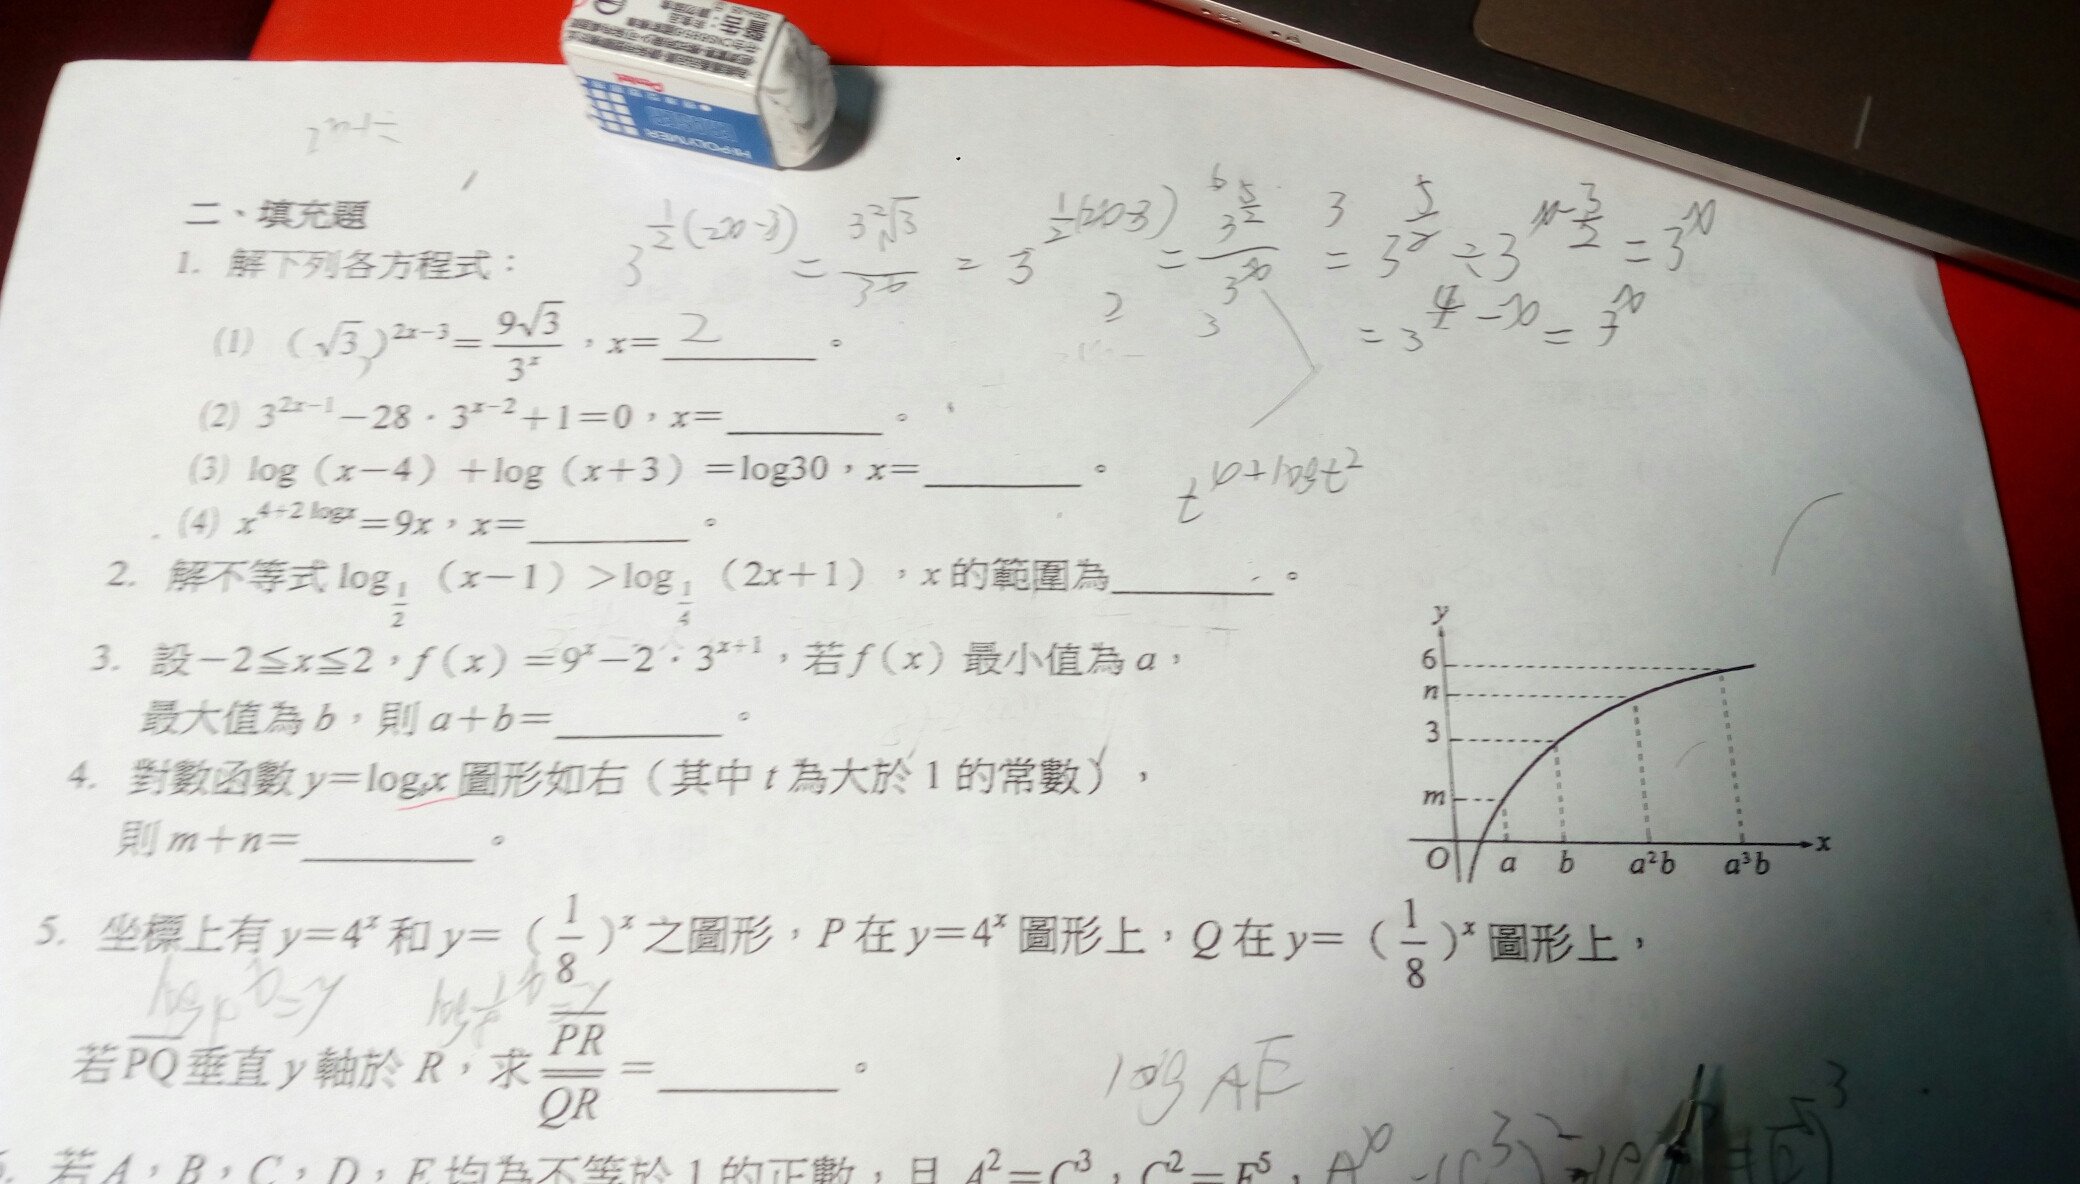 Pentel
HI-POLYMER
二、填充題
3^{\frac{1}{2}(2x-3)} = \frac{3^2\sqrt{3}}{3^x} = 3^{\frac{1}{2}(2x-3)} = \frac{3^{\frac{5}{2}}}{3^x} = 3^{\frac{5}{2}} ÷ 3^{x-\frac{3}{2}} = 3^x
= 3^{4-x} = 3^x
1. 解下列各方程式：
(1) (√3)^{2x-3} = \frac{9√3}{3^x}，x= 2 。
(2) 3^{2x-1}−28．3^{x-2}+1=0，x=______。
(3) log（x−4）+log（x+3）=log30，x=______。
(4) x^{4+2logx}=9x，x=______。
2. 解不等式 log_{\frac{1}{2}}（x−1）>log_{\frac{1}{4}}（2x+1），x 的範圍為______。
3. 設−2≦x≦2，f(x)=9^x−2．3^{x+1}，若 f(x) 最小值為 a，
最大值為 b，則 a+b=______。
4. 對數函數 y=log_t x 圖形如右（其中 t 為大於 1 的常數），
則 m+n=______。
y
6
n
3
m
O a b a²b a³b x
5. 坐標上有 y=4^x 和 y=（\frac{1}{8}）^x 之圖形，P 在 y=4^x 圖形上，Q 在 y=（\frac{1}{8}）^x 圖形上，
若 \overline{PQ} 垂直 y 軸於 R，求 \frac{\overline{PR}}{\overline{QR}} =______。
log AE
若 A，B，C，D，E 均為不等於 1 的正數，且 A²=C³，C²=E⁵，